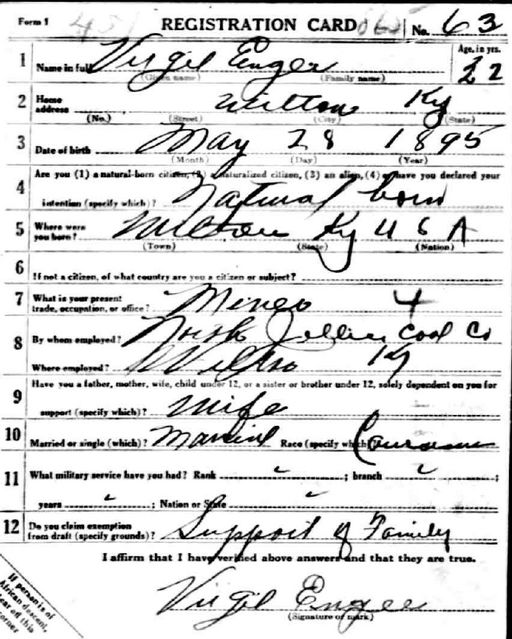 Form 1 REGISTRATION CARD No. 63
Age, in yrs.
1 Name in full Virgil Enger 22
(Given name) (Family name)
2 Home address Wilton Ky
(No.) (Street) (City) (State)
3 Date of birth May 28 1895
(Month) (Day) (Year)
Are you (1) a natural-born citizen, (2) a naturalized citizen, (3) an alien, (4) or have you declared your
4 intention (specify which)? Natural born
5 Where were you born? Wilton Ky U S A
(Town) (State) (Nation)
6 If not a citizen, of what country are you a citizen or subject?
7 What is your present trade, occupation, or office? Miner 4
8 By whom employed? North Jellico Coal Co
Where employed? Ky
Have you a father, mother, wife, child under 12, or a sister or brother under 12, solely dependent on you for
9 support (specify which)? Wife
10 Married or single (which)? Married Race (specify which)?
11 What military service have you had? Rank ; branch ;
years ; Nation or State
12 Do you claim exemption from draft (specify grounds)? Support of Family
I affirm that I have verified above answers and that they are true.
Virgil Enger
(Signature or mark)
If person is of
African descent,
corner